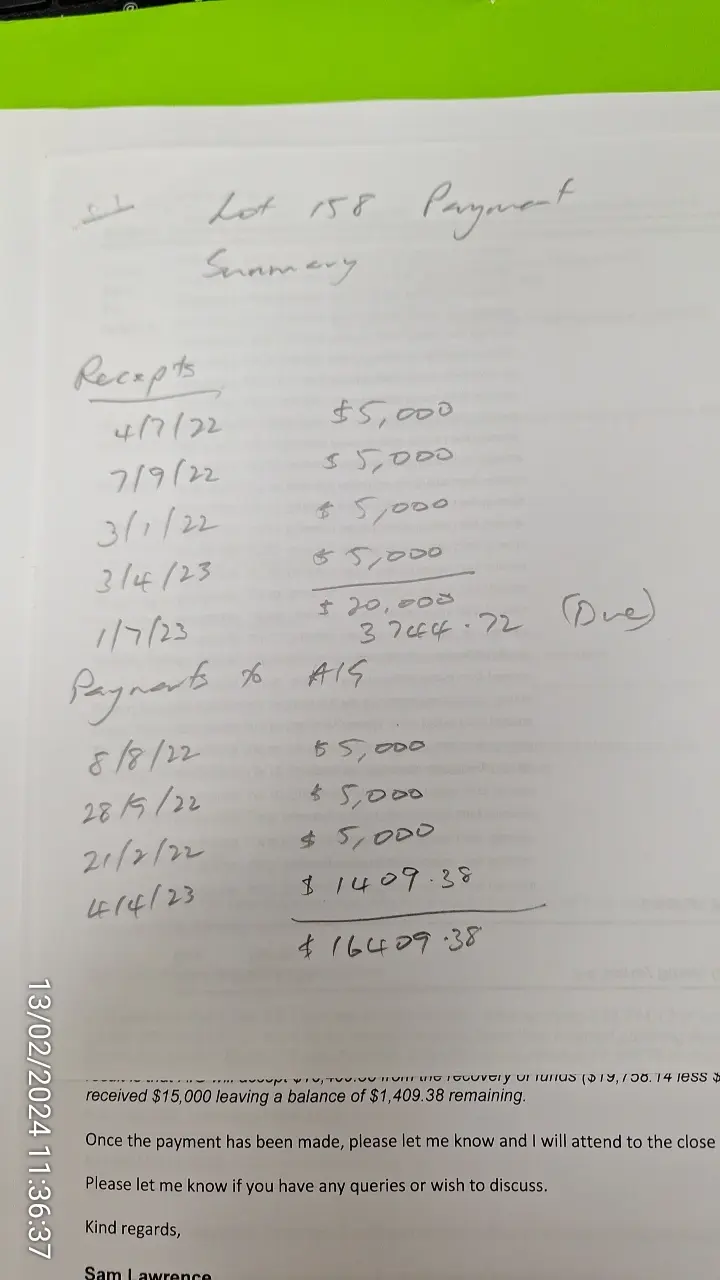 Lot 158 Payment
Summary
Recepts
4/7/22 $5,000
7/9/22 $5,000
3/1/22 $5,000
3/4/23 $5,000
$20,000
1/7/23 3744.72 (Due)
Payments to AIG
8/8/22 $5,000
28/9/22 $5,000
21/2/22 $5,000
4/4/23 $1409.38
$16409.38
the recovery of funds ($19,758.14 less $
received $15,000 leaving a balance of $1,409.38 remaining.
Once the payment has been made, please let me know and I will attend to the close
Please let me know if you have any queries or wish to discuss.
Kind regards,
Sam Lawrence
13/02/2024 11:36:37